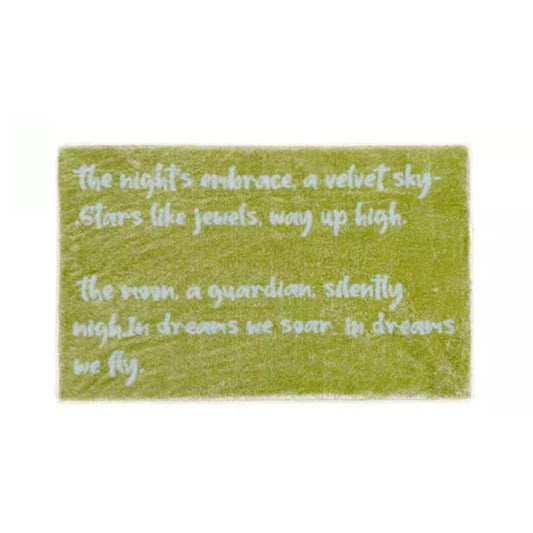 the night's embrace, a velvet sky-
Stars like jewels, way up high.
the moon, a guardian, silently
nigh.In dreams we soar, in dreams
we fly.